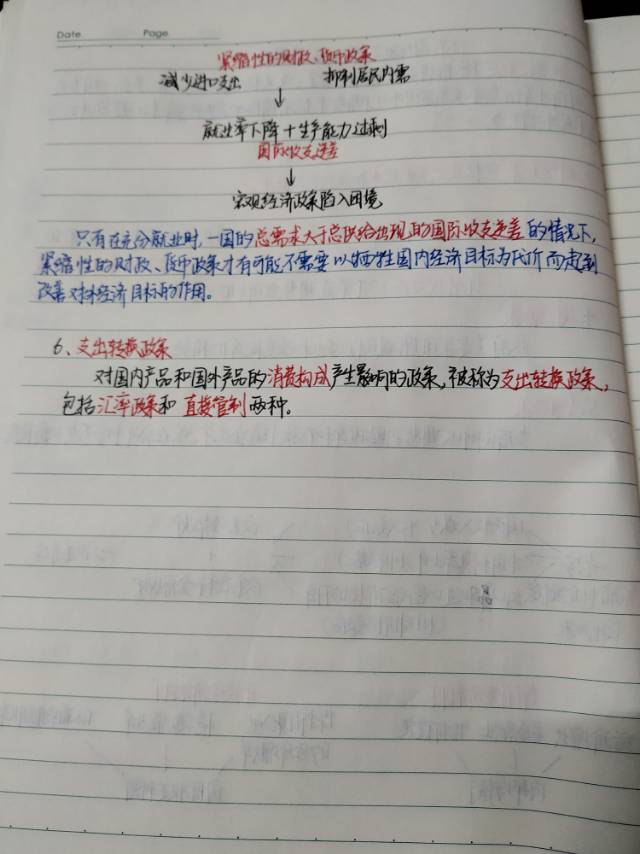 Date. Page.
紧缩性的财政、货币政策
减少进口支出 抑制居民内需
↓
就业率下降+生产能力过剩
国际收支逆差
↓
宏观经济政策陷入困境
只有在充分就业时,一国的总需求大于总供给出现的国际收支逆差的情况下,
紧缩性的财政、货币政策才有可能不需要以牺牲国内经济目标为代价而起到
改善对外经济目标的作用。
6、支出转换政策
对国内产品和国外产品的消费构成产生影响的政策,被称为支出转换政策,
包括汇率政策和直接管制两种。